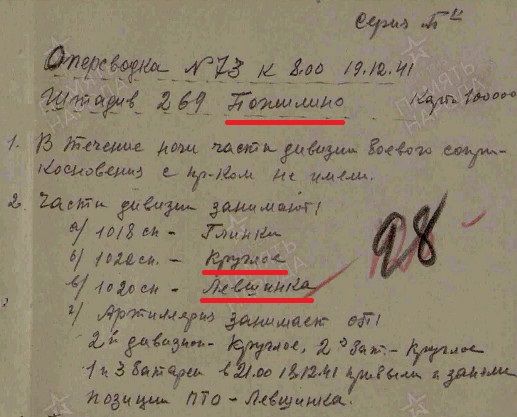 Серия "Г"
Оперсводка №73 к 8.00 19.12.41
Штадив 269 Пожилино Карта 100000
1. В течение ночи части дивизии боевого сопри-
косновения с пр-ком не имели.
2. Части дивизии занимают:
а/ 1018 сп - Глинки
б/ 1022 сп. - Круглое
в/ 1020 сп - Левщинка
г/ Артиллерия занимает ОП:
2й дивизион - Круглое, 2я Бат. - Круглое
1 и 3 батареи в 21.00 18.12.41 прибыли и заняли
позиции ПТО - Левщинка.
98